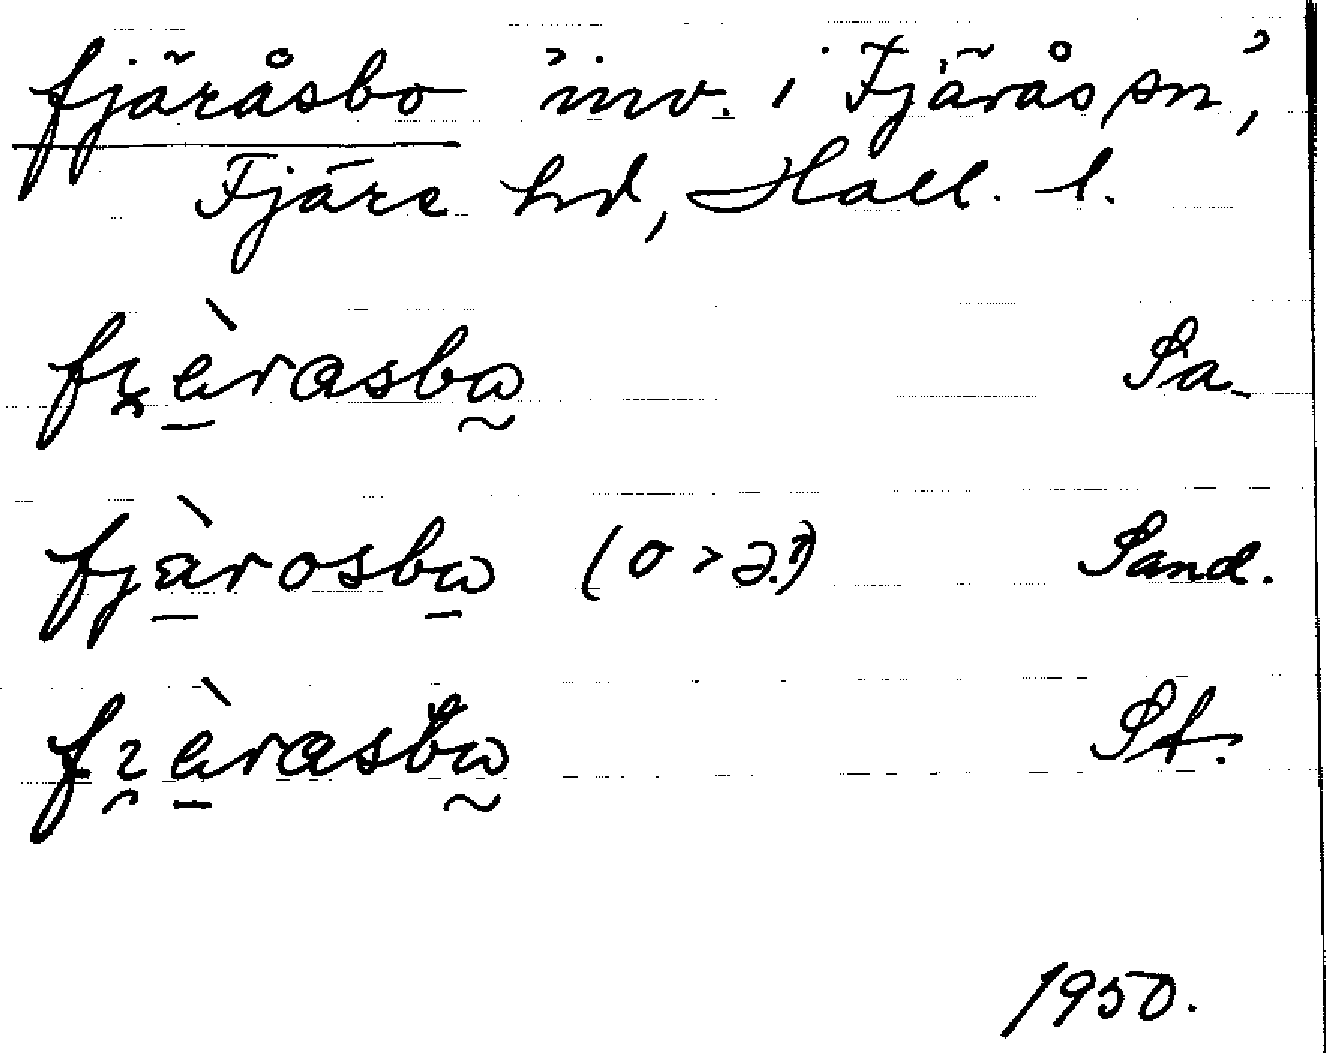 fjäråsbo 'inv. i Fjärås sn',
Fjäre hd, Hall. l.
fʒ̯è̠rasbω̰ Sa.
fjä̠̀rosbω̠ (o > ə?) Sand.
fʒ̯è̠rasbω̰ St.
1950.